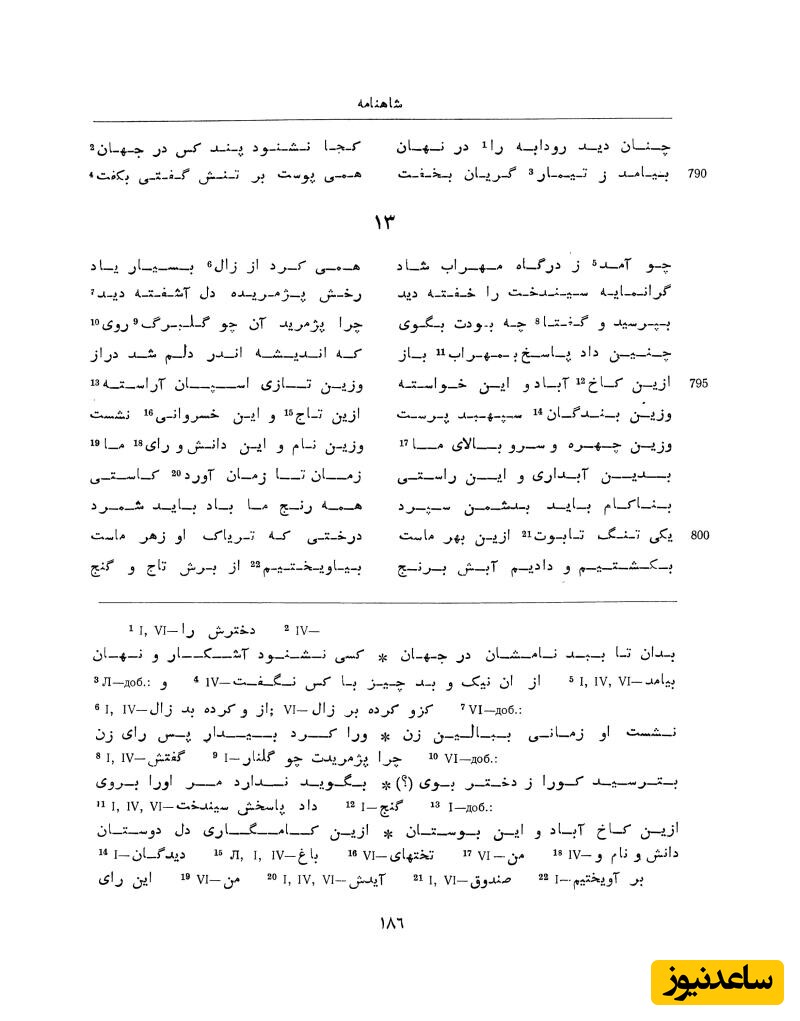 شاهنامه
چنان دید رودابه را¹ در نهان کجا نشنود پند کس در جهان²
790 بیامد ز تیمار³ گریان بخفت همی پوست بر تنش گفتی بکفت⁴
۱۳
چو آمد⁵ ز درگاه مهراب شاد همی کرد از زال⁶ بسیار یاد
گرانمایه سیندخت را خفته دید رخش پژمریده دل آشفته دید⁷
بپرسید و گفتا⁸ چه بودت بگوی چرا پژمرید آن چو گلبرگ⁹ روی¹⁰
چنین داد پاسخ بمهراب¹¹ باز که اندیشه اندر دلم شد دراز
795 ازین کاخ¹² آباد و این خواسته وزین تازی اسپان آراسته¹³
وزین بندگان¹⁴ سپهبد پرست ازین تاج¹⁵ و این خسروانی¹⁶ نشست
وزین چهره و سرو بالای ما¹⁷ وزین نام و این دانش و رای¹⁸ ما¹⁹
بدین آبداری و این راستی زمان تا زمان آورد²⁰ کاستی
بناکام باید بدشمن سپرد همه رنج ما باد باید شمرد
800 یکی تنگ تابوت²¹ ازین بهر ماست درختی که تریاک او زهر ماست
بکشتیم و دادیم آبش برنج بیاویختیم²² از برش تاج و گنج
¹ I, VI— دخترش را ² IV—
بدان تا ببد نامشان در جهان * کسی نشنود آشکار و نهان
³ Л—доб.: و ⁴ IV— از ان نیک و بد چیز با کس نگفت ⁵ I, IV, VI— بیامد
⁶ I, IV— از و کرده بد زال; VI— کزو کرده بر زال ⁷ VI—доб.:
نشست او زمانی ببالین زن * ورا کرد بیدار پس رای زن
⁸ I, IV— گفتش ⁹ I— چرا پژمریدت چو گلنار ¹⁰ VI—доб.:
بترسید کورا ز دختر بوی (؟) * بگوید ندارد مر اورا بروی
¹¹ I, IV, VI— داد پاسخش سیندخت ¹² I— گنج ¹³ I—доб.:
ازین کاخ آباد و این بوستان * ازین کامگاری دل دوستان
¹⁴ I— دیدگان ¹⁵ Л, I, IV— باغ ¹⁶ VI— تختهای ¹⁷ VI— من ¹⁸ IV— دانش و نام و
این رای ¹⁹ VI— من ²⁰ I, IV, VI— آیدش ²¹ I, VI— صندوق ²² I— بر آویختیم
۱۸۶
ساعدنیوز